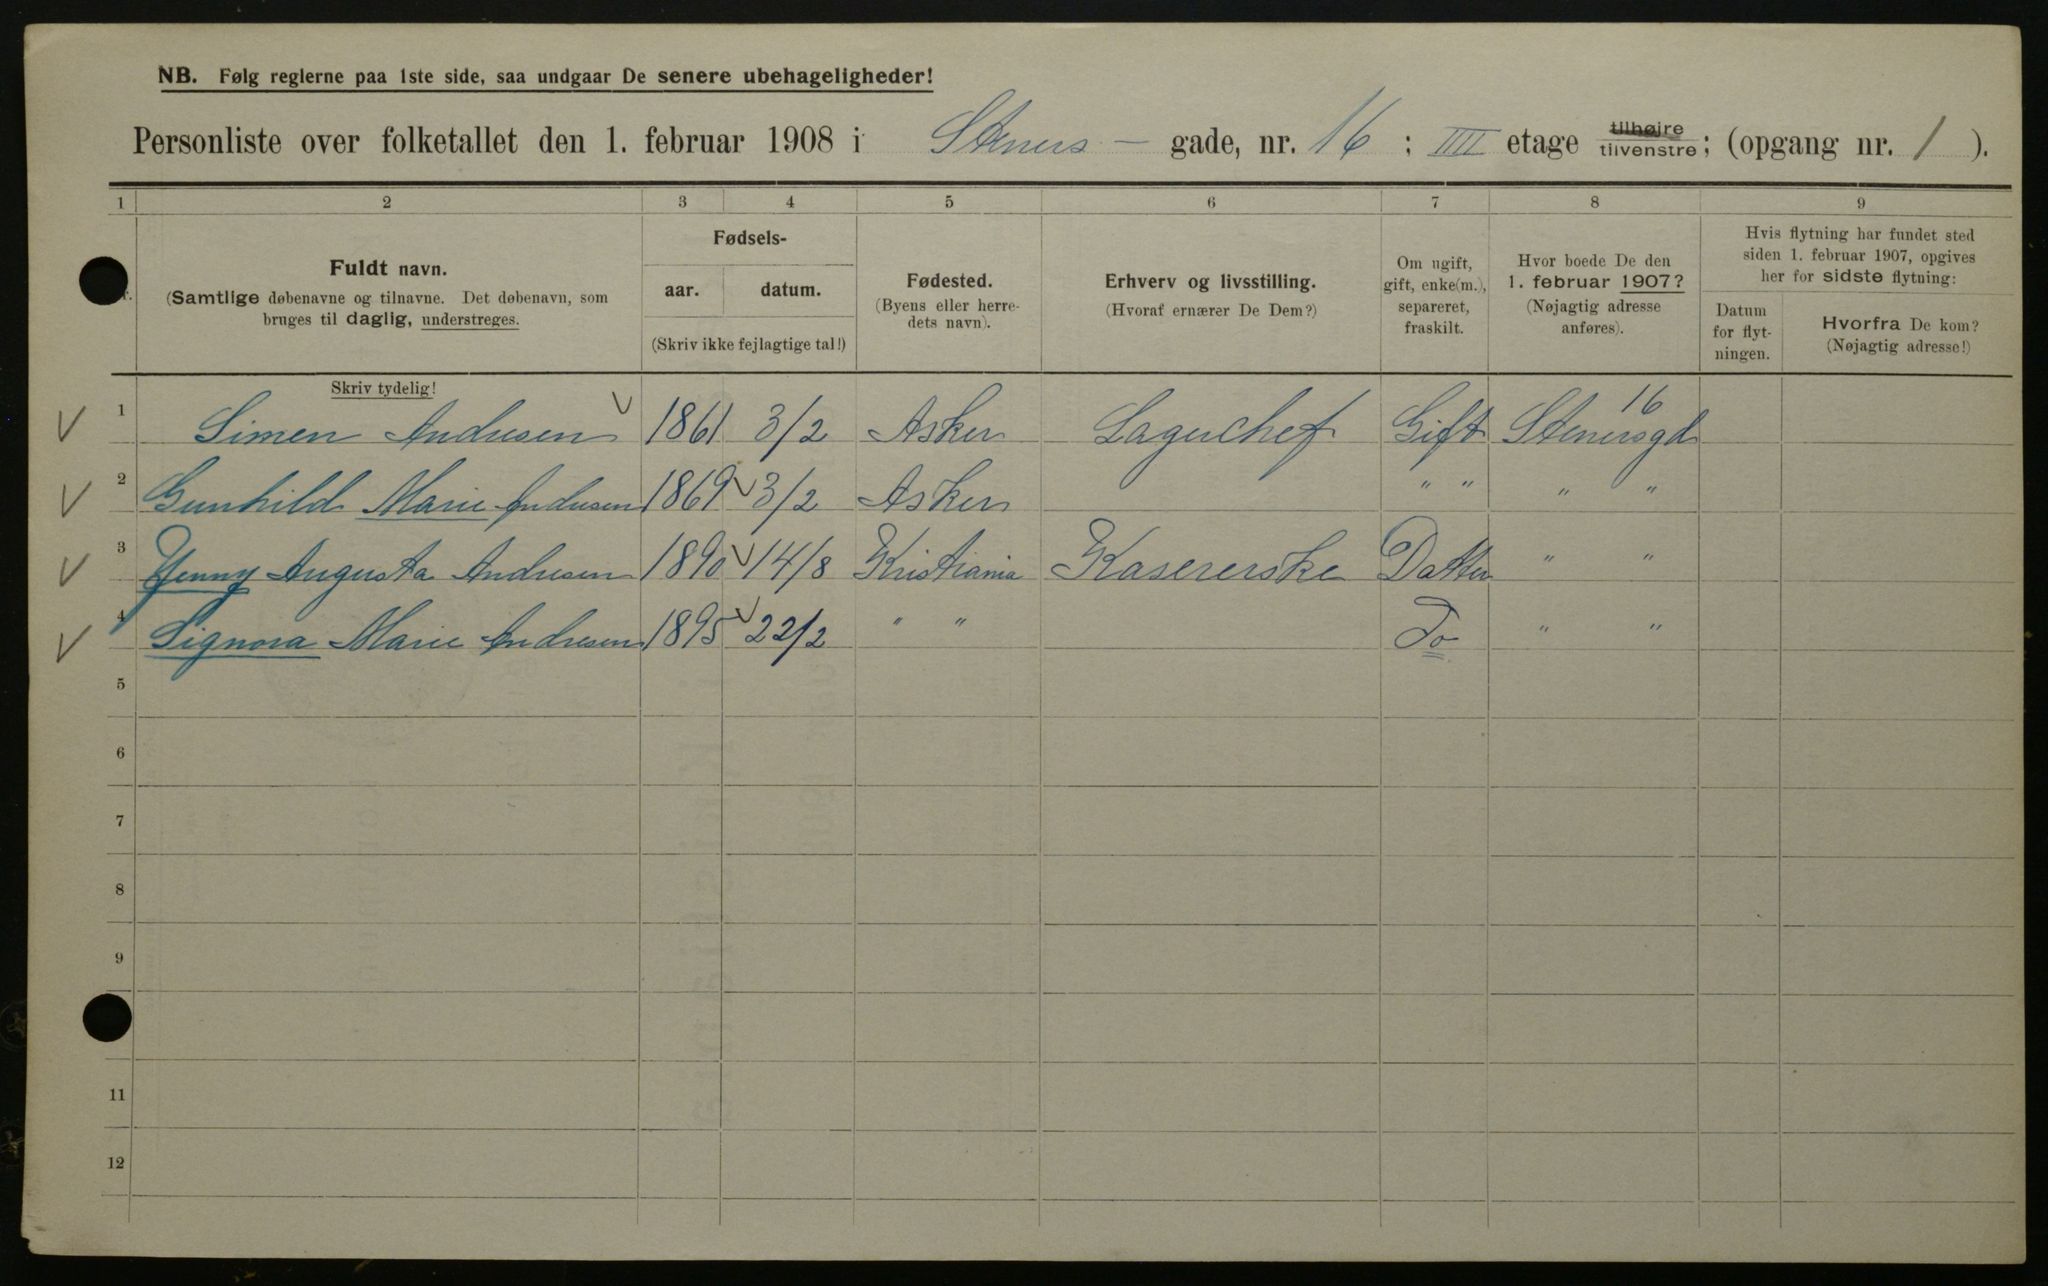 NB. Følg reglerne paa 1ste side, saa undgaar De senere ubehageligheder!
Personliste over folketallet den 1. februar 1908 i Steners - gade, nr. 16 ; IIII etage tilhøjre tilvenstre ; (opgang nr. 1 ).
1 2 3 4 5 6 7 8 9
Fuldt navn.
(Samtlige døbenavne og tilnavne. Det døbenavn, som
bruges til daglig, understreges.
Skriv tydelig!
Fødsels-
aar. datum.
(Skriv ikke fejlagtige tal!)
Fødested.
(Byens eller herre-
dets navn).
Erhverv og livsstilling.
(Hvoraf ernærer De Dem?)
Om ugift,
gift, enke(m.),
separeret,
fraskilt.
Hvor boede De den
1. februar 1907?
(Nøjagtig adresse
anføres).
Hvis flytning har fundet sted
siden 1. februar 1907, opgives
her for sidste flytning:
Datum
for flyt-
ningen.
Hvorfra De kom?
(Nøjagtig adresse!)
1 Simen Andresen 1861 3/2 Asker Lagerchef Gift Stenersgd 16
2 Gunhild Marie Andresen 1869 3/2 Asker " " " "
3 Yenny Augusta Andresen 1890 14/8 Kristiania Kasererske Datter " "
4 Signora Marie Andresen 1895 22/2 " " Do " "
5
6
7
8
9
11
12